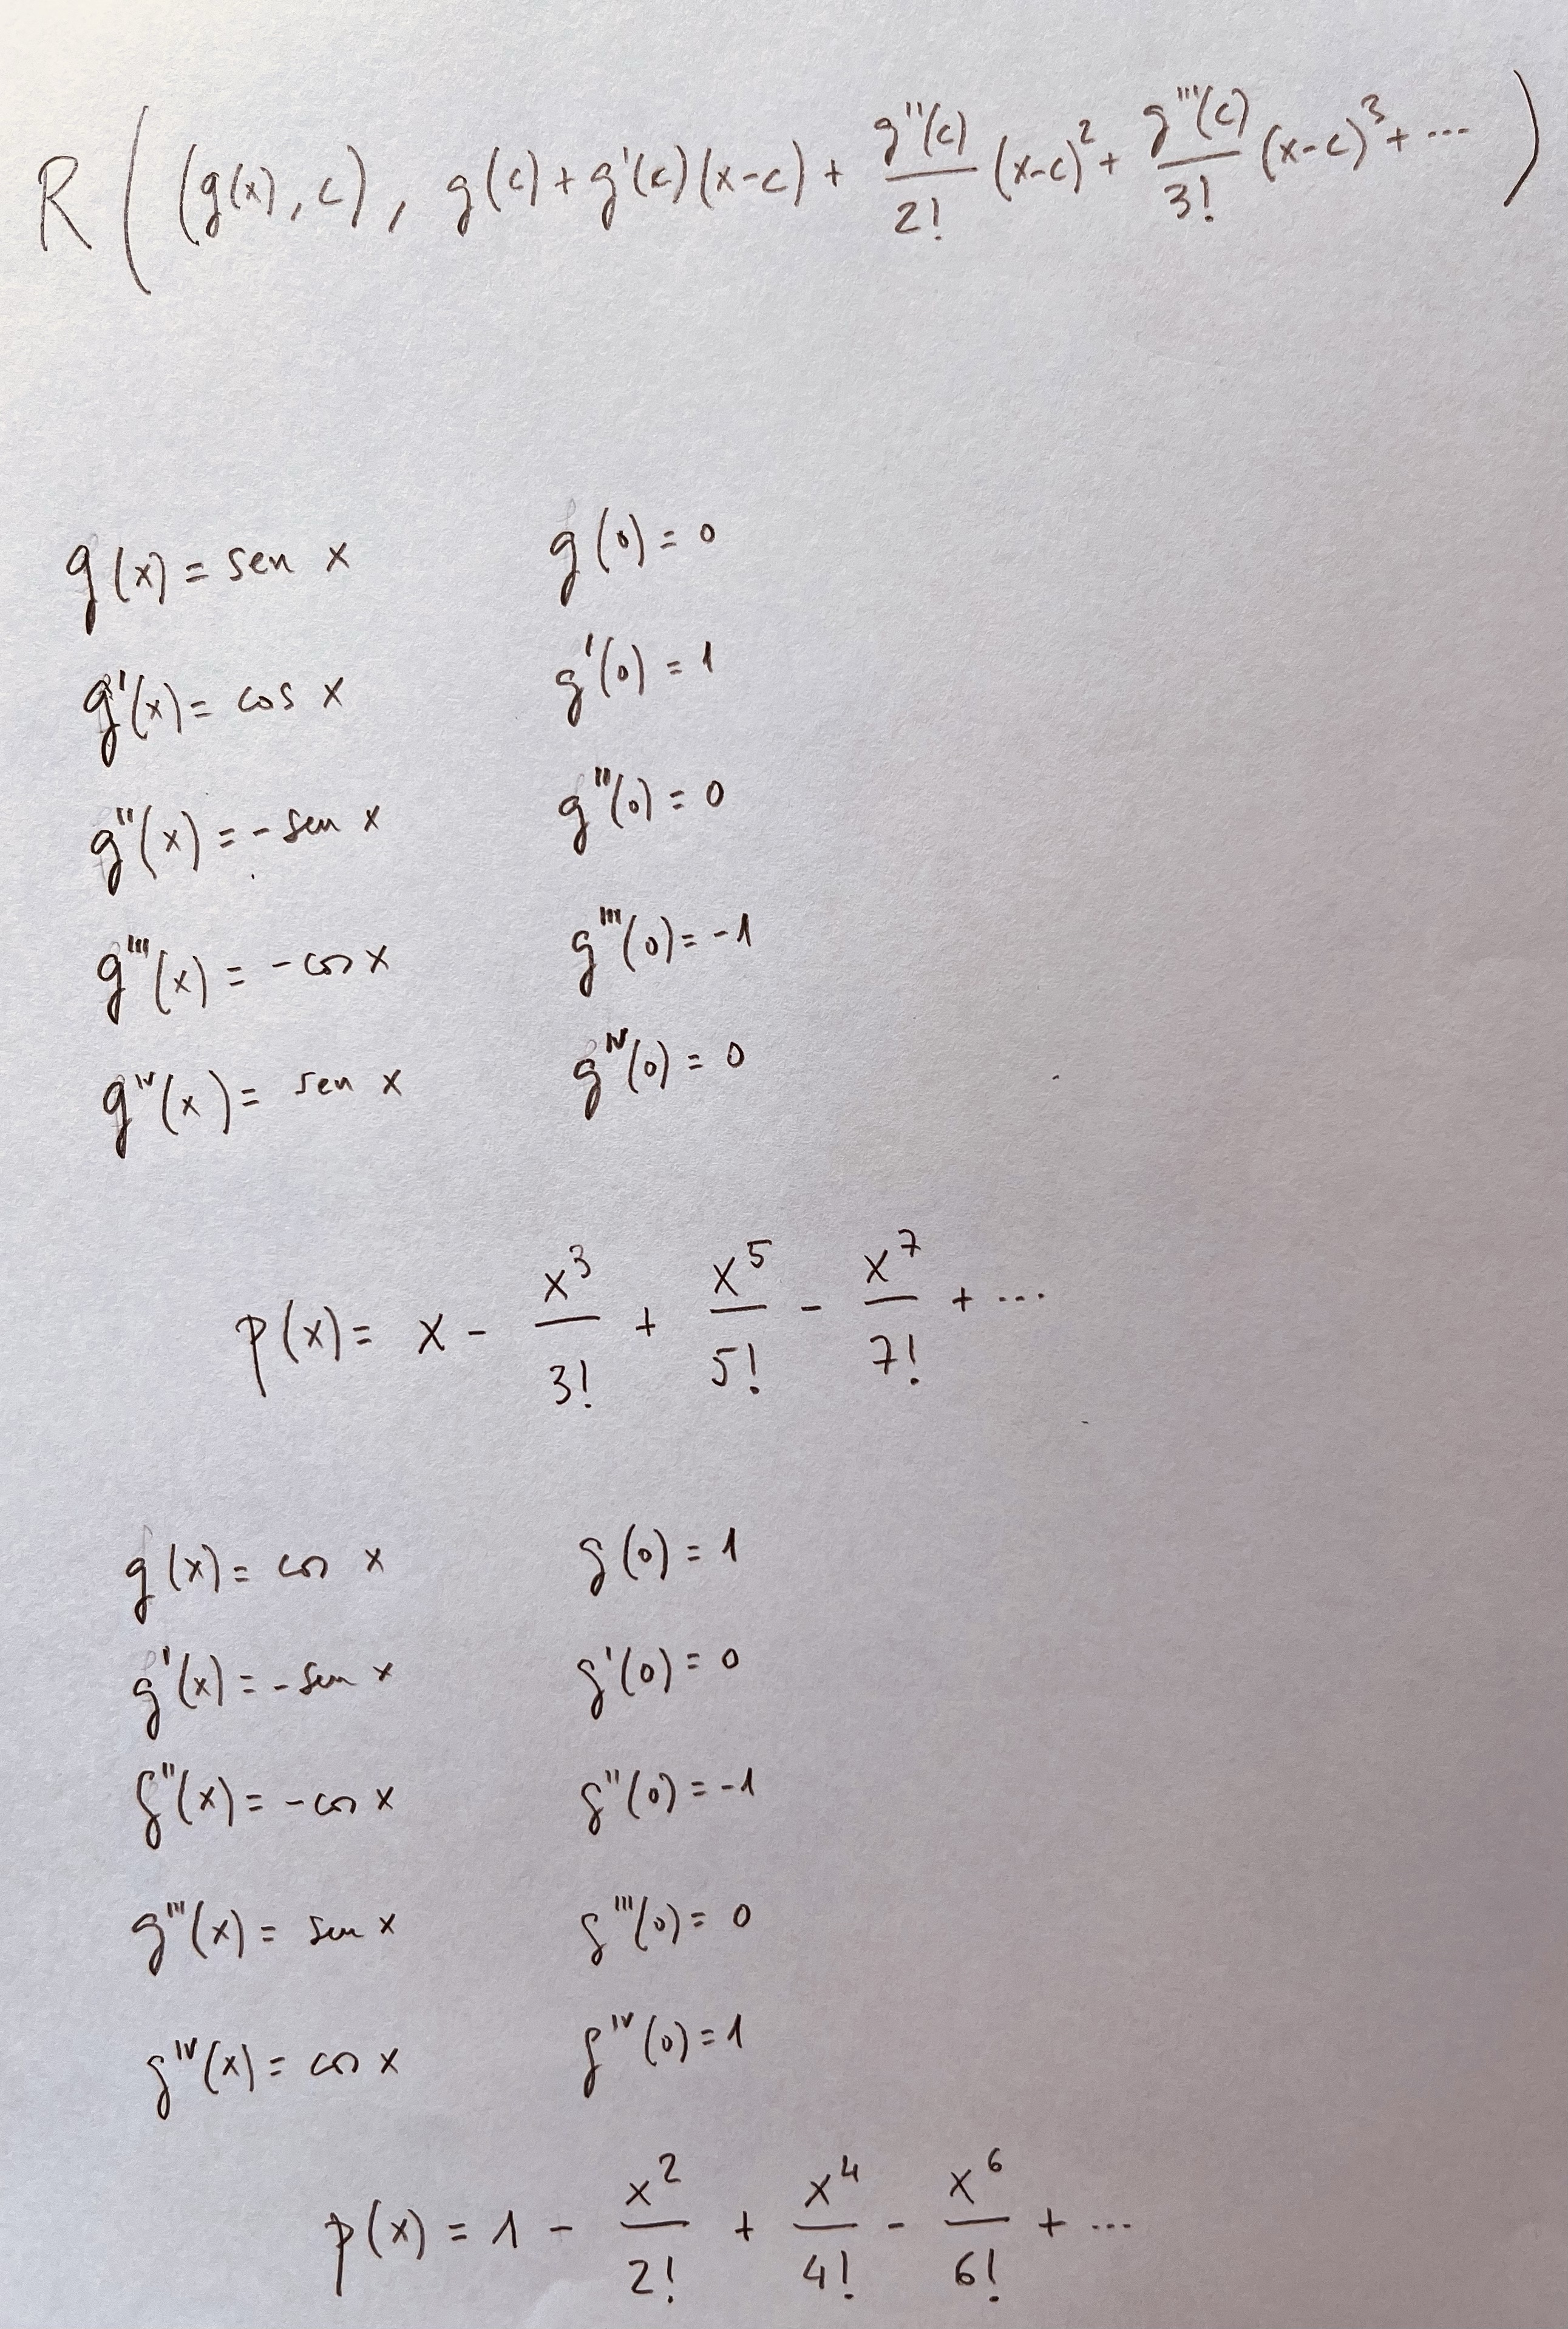 R ( (g(x), c), g(c) + g'(c)(x-c) + g''(c)/2! (x-c)² + g'''(c)/3! (x-c)³ + ... )
g(x) = sen x g(0) = 0
g'(x) = cos x g'(0) = 1
g''(x) = - sen x g'''(0) = 0
g'''(x) = - cos x g'''(0) = -1
g^IV(x) = sen x g^IV(0) = 0
p(x) = x - x³/3! + x⁵/5! - x⁷/7! + ...
g(x) = cos x g(0) = 1
g'(x) = - sen x g'(0) = 0
g''(x) = - cos x g''(0) = -1
g'''(x) = sen x g'''(0) = 0
g^IV(x) = cos x g^IV(0) = 1
p(x) = 1 - x²/2! + x⁴/4! - x⁶/6! + ...